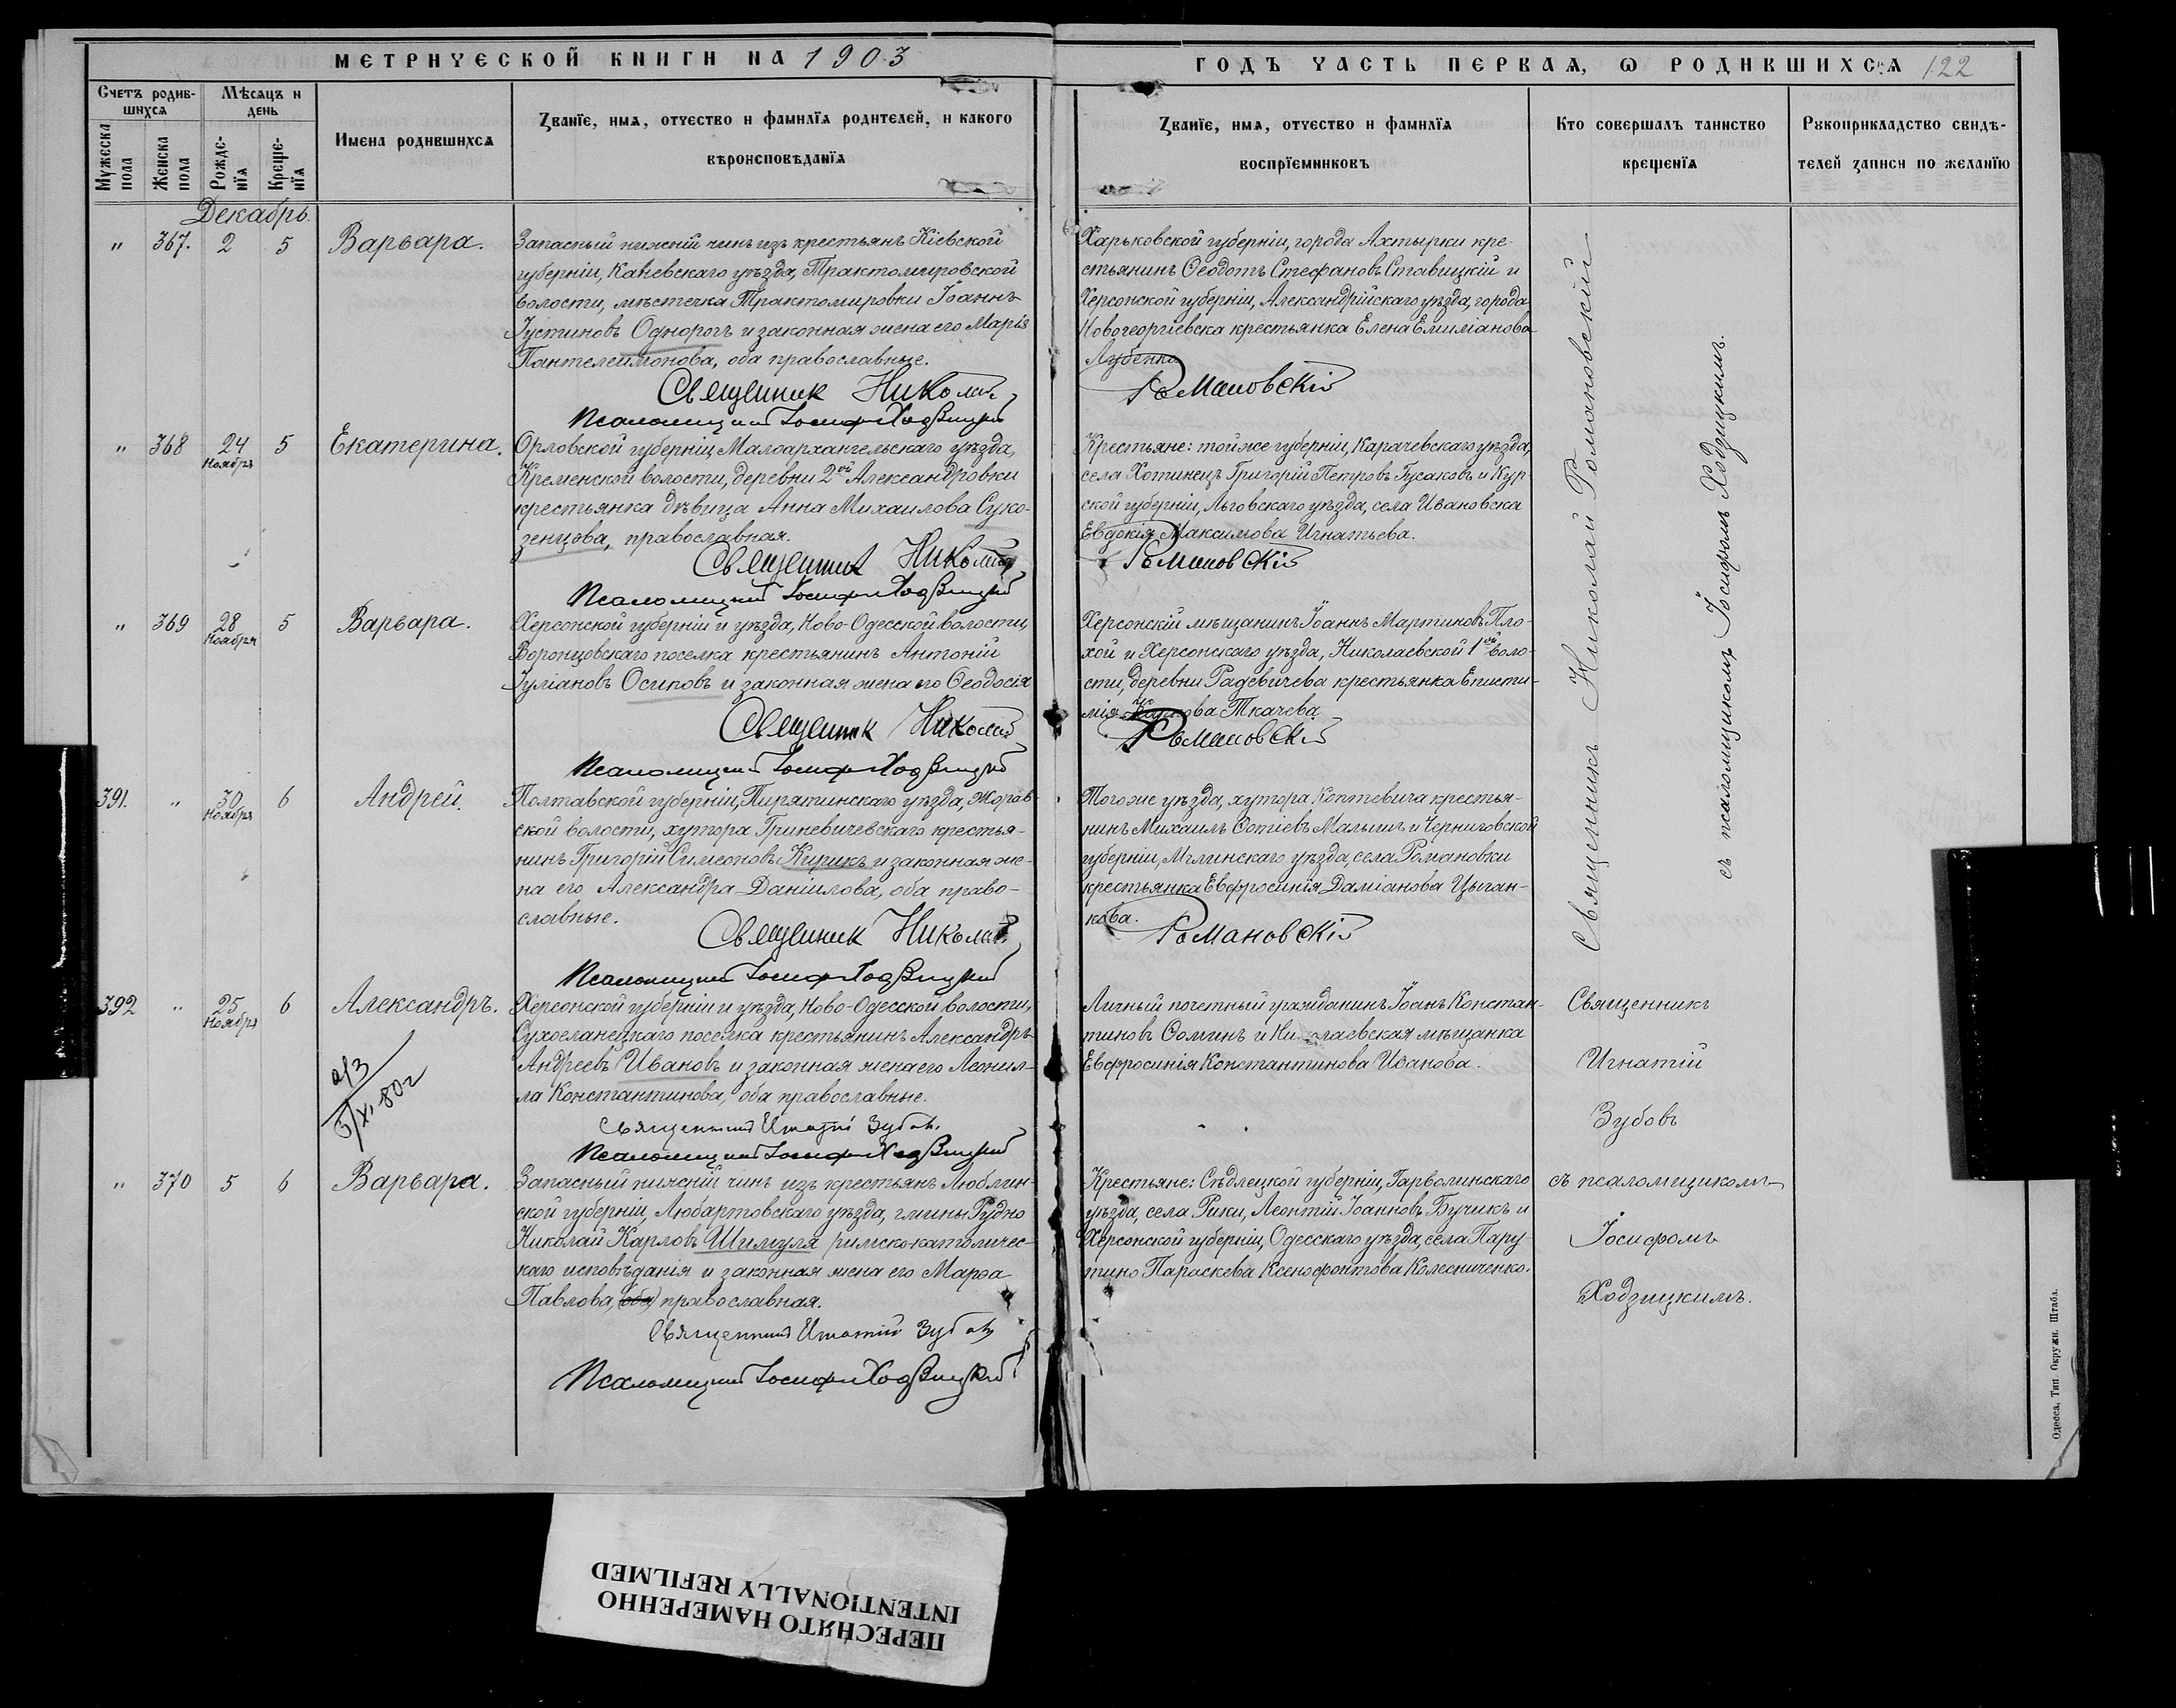 МЕТРИЧЕСКОЙ КНИГИ НА 1903
Счетъ родив-
шихся
Мѣсяцъ и
день
Мужеска
пола
Женска
пола
Рожде-
нїя
Креще-
нїя
Имена родившихся
Званїе, имя, отчество и фамилїя родителей, и какого
вѣроисповѣданїя
Декабрь.
" 367. 2 5 Варвара.
Запасный нижній чинъ изъ крестьянъ Кіевской
губерніи, Каневскаго уѣзда, Трактомировской
волости, мѣстечка Трактомировки Іоаннъ
Іустиновъ Однорогъ и законная жена его Марія
Пантелеимонова, оба православные.
Священник Николай
Псаломщикъ Іосифъ Ходзицкій
" 368 24 Ноября 5 Екатерина.
Орловской губерніи, Малоархангельскаго уѣзда,
Кременской волости, деревни 2ой Александровки
крестьянка дѣвица Анна Михаилова Суко-
зенцова, православная.
Священник Николай
Псаломщикъ Іосифъ Ходзицкій
" 369 28 Ноября 5 Варвара.
Херсонской губерніи и уѣзда, Ново-Одесской волости,
Воронцовскаго поселка крестьянинъ Антоній
Іуліановъ Осиповъ и законная жена его Ѳеодосія
Священник Николай
Псаломщикъ Іосифъ Ходзицкій
391. " 30 Ноября 6 Андрей.
Полтавской губерніи, Пирятинскаго уѣзда, Жорав-
ской волости, хутора Гриневичевскаго крестья-
нинъ Григорій Симеоновъ Кирикъ и законная же-
на его Александра Даніилова, оба право-
славные.
Священник Николай
Псаломщикъ Іосифъ Ходзицкій
392 " 25 Ноября 6 Александръ.
Херсонской губерніи и уѣзда, Ново-Одесской волости,
Сухоеланецкаго поселка крестьянинъ Александръ
Андреевъ Ивановъ и законная жена его Леонил-
ла Константинова, оба православные.
5/XI-80г
Священникъ Игнатій Зубовъ
Псаломщикъ Іосифъ Ходзицкій
" 370 5 6 Варвара.
Запасный нижній чинъ изъ крестьянъ Люблин-
ской губерніи, Любартовскаго уѣзда, гмины Рудно
Николай Карловъ Шимуля римско-католичес-
каго исповѣданія и законная жена его Марѳа
Павлова, (оба) православная.
Священникъ Игнатій Зубовъ
Псаломщикъ Іосифъ Ходзицкій
ГОДЪ ЧАСТЬ ПЕРВАЯ, Ѡ РОДИВШИХСЯ 122
Званїе, имя, отчество и фамилїя
воспрїемниковъ
Кто совершалъ таинство
крещенїя
Рукоприкладство свидѣ-
телей записи по желанїю
Харьковской губерніи, города Ахтырки кре-
стьянинъ Ѳеодотъ Стефановъ Ставицкій и
Херсонской губерніи, Александрійскаго уѣзда, города
Новогеоргіевска крестьянка Елена Емиліанова
Лубенко
Романовскій
Крестьяне: той же губерніи, Карачевскаго уѣзда,
села Хотинецъ Григорій Петровъ Гусаковъ и Кур-
ской губерніи, Льговскаго уѣзда, села Ивановска
Евдокія Максимова Игнатьева.
Романовскій
Херсонскій мѣщанинъ Іоаннъ Мартиновъ Пло-
хой и Херсонскаго уѣзда, Николаевской 1ой воло-
сти, деревни Радевичева крестьянка Еписти-
мія Ткачева.
Романовскій
Того же уѣзда, хутора Коптевича крестья-
нинъ Михаилъ Фотіевъ Малышъ и Черниговской
губерніи, Мглинскаго уѣзда, села Романовки
крестьянка Евфросинія Даміанова Цыган-
кова.
Романовскій
Личный почетный гражданинъ Іоанъ Констан-
тиновъ Ѳоминъ и Николаевская мѣщанка
Евфросинія Константинова Иванова.
Крестьяне: Сѣдлецкой губерніи, Гарволинскаго
уѣзда, села Рики, Леонтій Іоанновъ Бучикъ и
Херсонской губерніи, Одесскаго уѣзда, села Пару-
тино Параскева Ксенофонтова Колесниченко.
Священникъ Николай Романовскій
съ псаломщикомъ Іосифомъ Ходзицкимъ.
Священникъ
Игнатій
Зубовъ
съ псаломщикомъ
Іосифомъ
Ходзицкимъ.
Одесса, Тип Окружн. Штаба.
ПЕРЕСНЯТО НАМЕРЕННО
INTENTIONALLY REFILMED